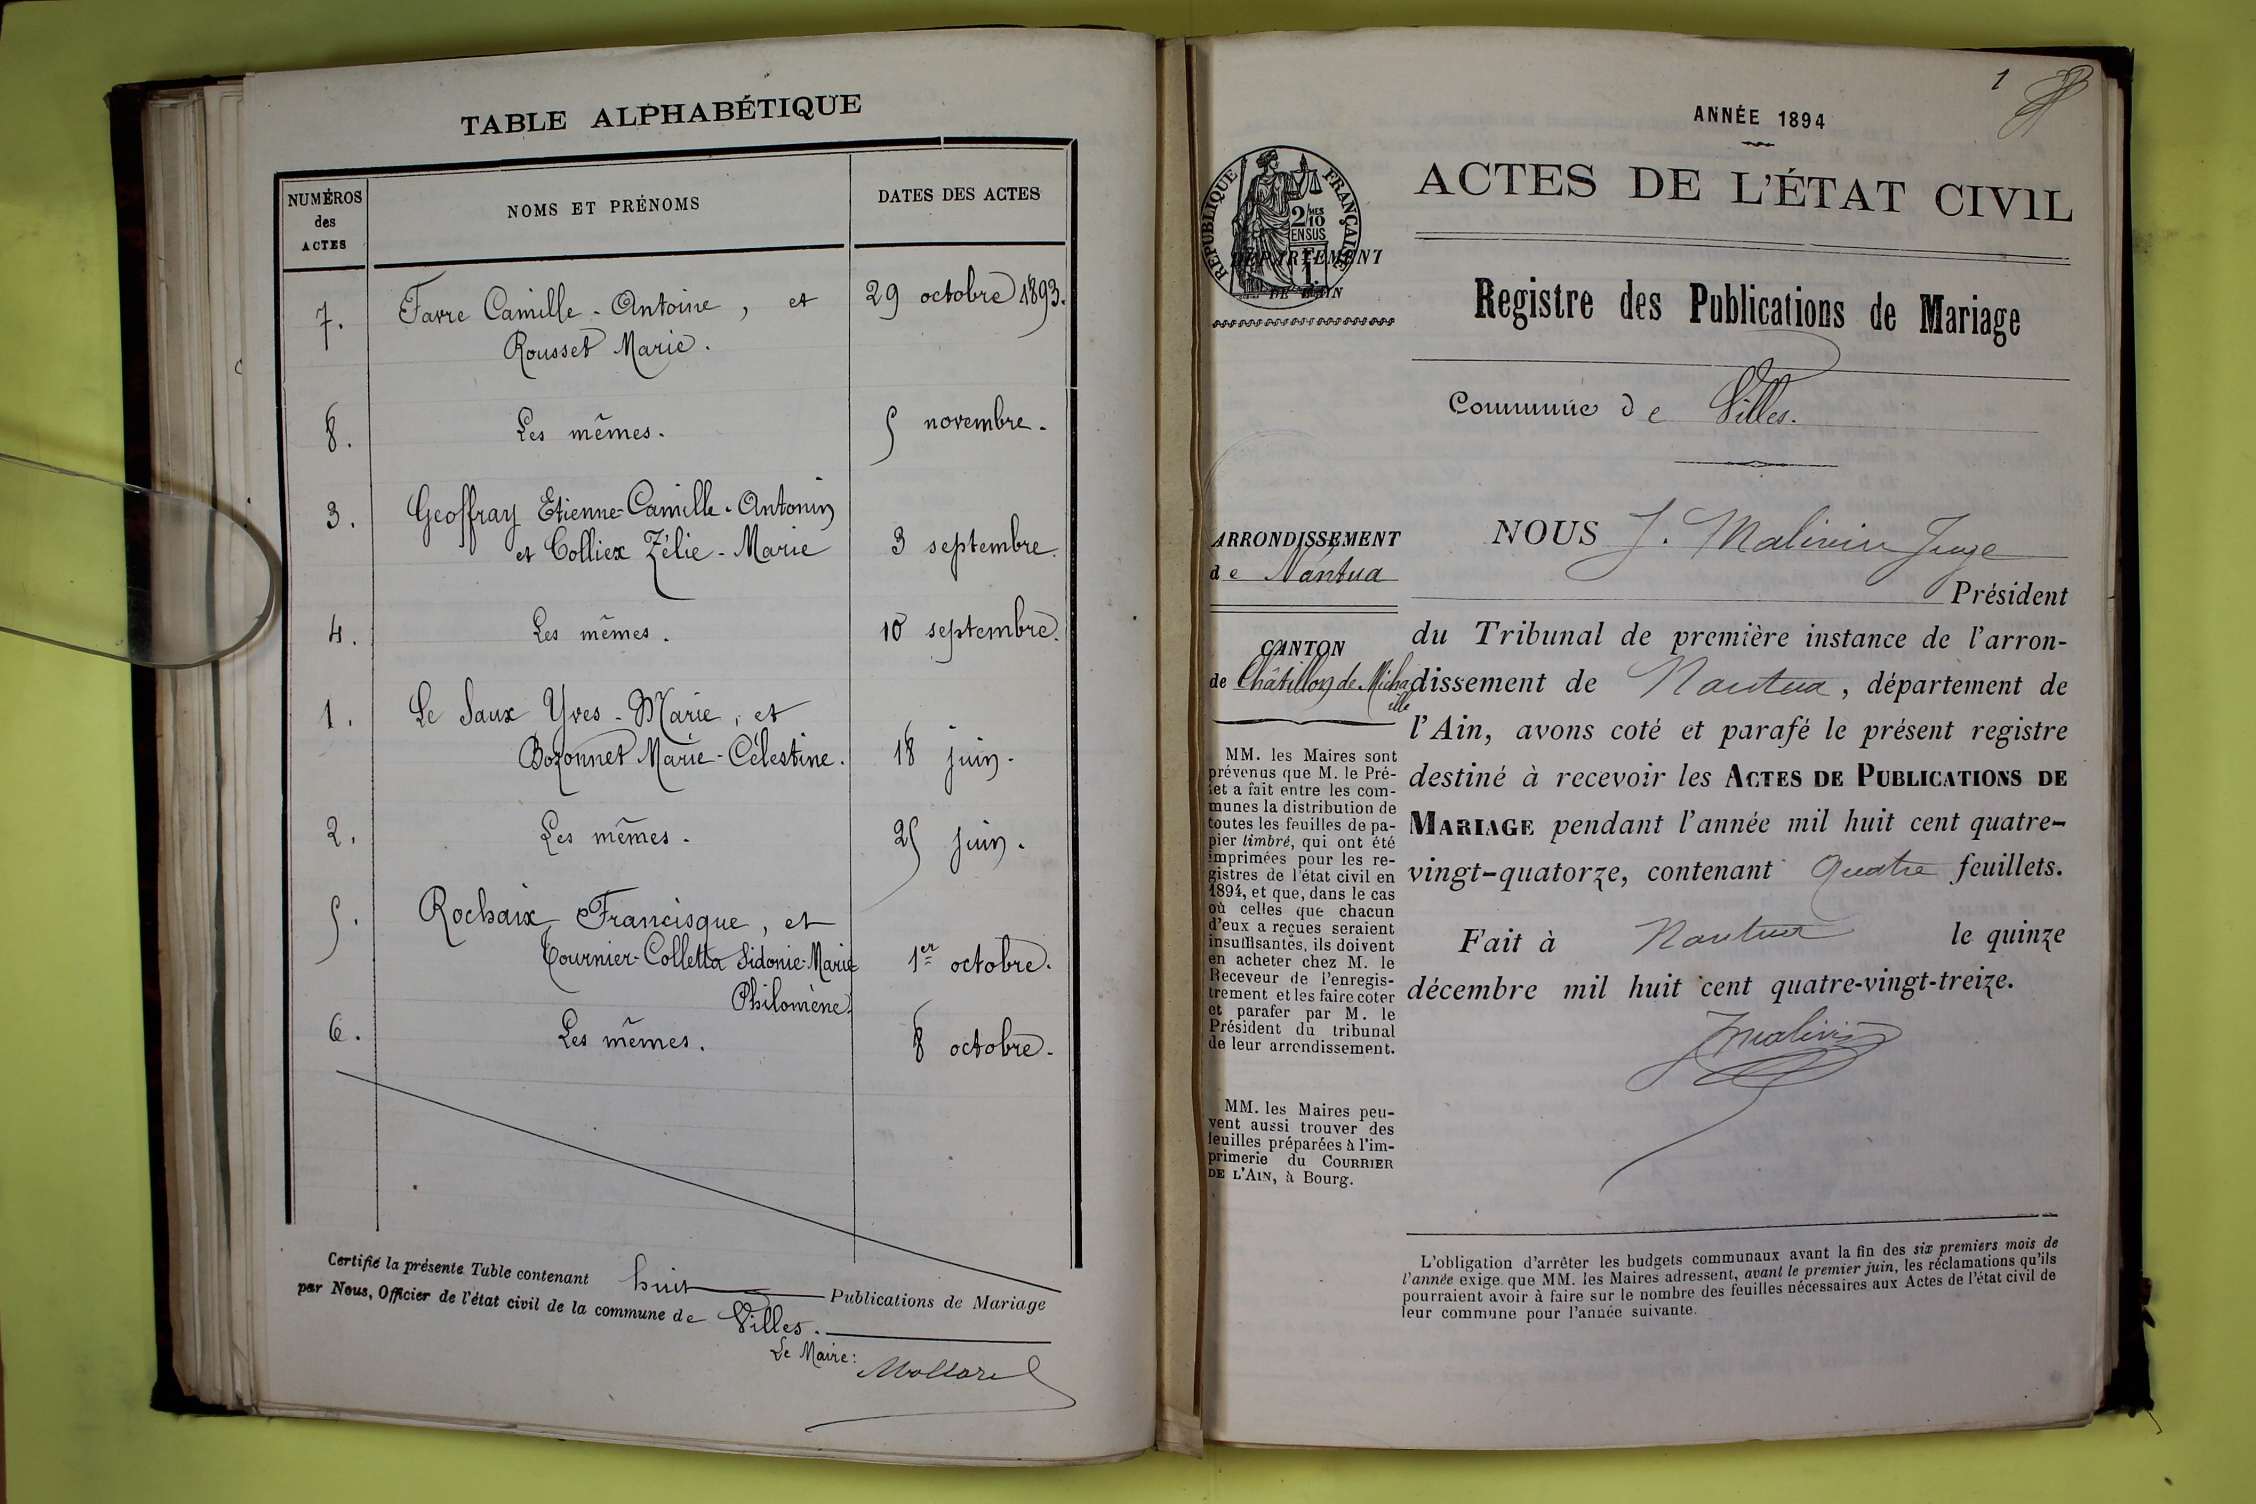 TABLE ALPHABÉTIQUE
NUMÉROS
des
ACTES
NOMS ET PRÉNOMS
DATES DES ACTES
7. Favre Camille-Antoine, et 29 octobre 1893.
Rousset Marie.
8. Les mêmes. 5 novembre.
3. Geoffray Etienne-Camille-Antonin
et Colliex Zélie-Marie 3 septembre.
4. Les mêmes. 10 septembre.
1. Le Saux Yves-Marie, et
Bozonnet Marie-Célestine. 18 juin.
2. Les mêmes. 25 juin.
5. Rochaix Francisque, et
Tournier-Colletta Sidonie-Marie 1er octobre.
Philomène.
6. Les mêmes. 8 octobre.
Certifié la présente Table contenant huit Publications de Mariage
par Nous, Officier de l'état civil de la commune de Villes.
Le Maire:
1
ANNÉE 1894
ACTES DE L'ÉTAT CIVIL
RÉPUBLIQUE FRANÇAISE
2/10
MES
EN SUS
DÉPARTEMENT
DE L'AIN
Registre des Publications de Mariage
Commune de Villes.
ARRONDISSEMENT
de Nantua
CANTON
de Châtillon de Micha
ille
MM. les Maires sont
prévenus que M. le Pré-
fet a fait entre les com-
munes la distribution de
toutes les feuilles de pa-
pier timbré, qui ont été
imprimées pour les re-
gistres de l'état civil en
1894, et que, dans le cas
où celles que chacun
d'eux a reçues seraient
insuffisantes, ils doivent
en acheter chez M. le
Receveur de l'enregis-
trement et les faire coter
et parafer par M. le
Président du tribunal
de leur arrondissement.
MM. les Maires peu-
vent aussi trouver des
feuilles préparées à l'im-
primerie du COURRIER
DE L'AIN, à Bourg.
NOUS J. Malivin Juge
Président
du Tribunal de première instance de l'arron-
dissement de Nantua, département de
l'Ain, avons coté et parafé le présent registre
destiné à recevoir les ACTES DE PUBLICATIONS DE
MARIAGE pendant l'année mil huit cent quatre-
vingt-quatorze, contenant quatre feuillets.
Fait à Nantua le quinze
décembre mil huit cent quatre-vingt-treize.
JMalivin
L'obligation d'arrêter les budgets communaux avant la fin des six premiers mois de
l'année exige que MM. les Maires adressent, avant le premier juin, les réclamations qu'ils
pourraient avoir à faire sur le nombre des feuilles nécessaires aux Actes de l'état civil de
leur commune pour l'année suivante.